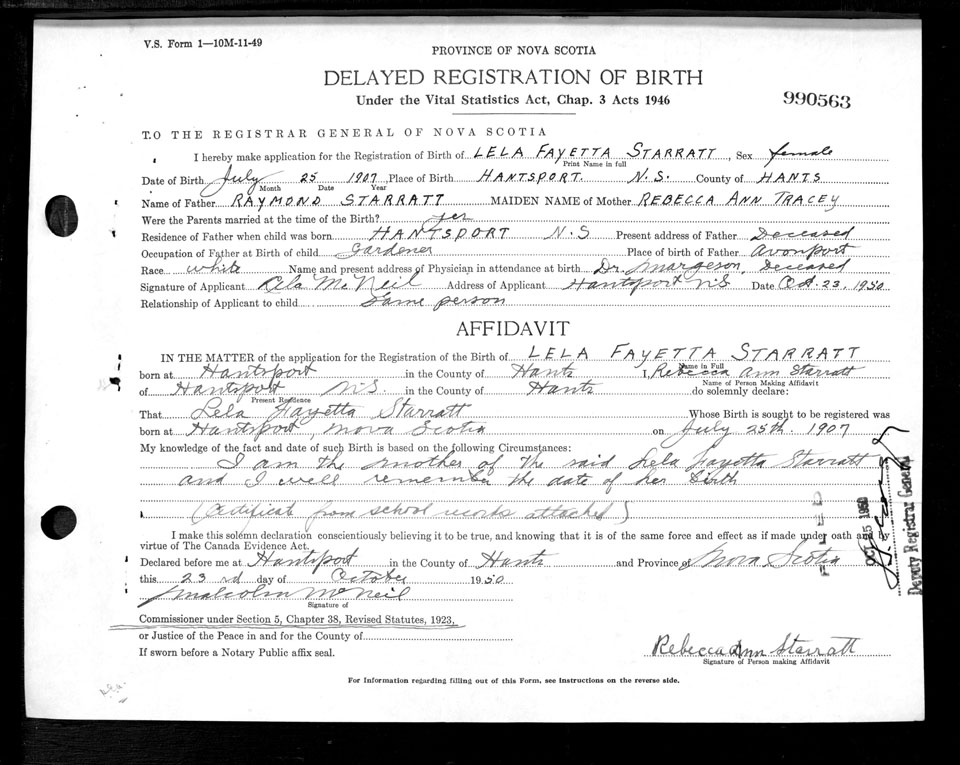 V.S. Form 1—10M-11-49
PROVINCE OF NOVA SCOTIA
DELAYED REGISTRATION OF BIRTH
Under the Vital Statistics Act, Chap. 3 Acts 1946
990563
TO THE REGISTRAR GENERAL OF NOVA SCOTIA
I hereby make application for the Registration of Birth of LELA FAYETTA STARRATT, Sex female
Print Name in full
Date of Birth July 25 1907, Place of Birth HANTSPORT N.S. County of HANTS
Month Date Year
Name of Father RAYMOND STARRATT MAIDEN NAME of Mother REBECCA ANN TRACEY
Were the Parents married at the time of the Birth? yes
Residence of Father when child was born HANTSPORT N.S Present address of Father Deceased
Occupation of Father at Birth of child Gardener Place of birth of Father Avonport
Race white Name and present address of Physician in attendance at birth Dr. Margeson, Deceased
Signature of Applicant Lela McNeil Address of Applicant Hantsport NS Date Oct. 23, 1950
Relationship of Applicant to child Same person
AFFIDAVIT
IN THE MATTER of the application for the Registration of the Birth of LELA FAYETTA STARRATT
Name in Full
born at Hantsport in the County of Hants I, Rebecca Ann Starratt
Name of Person Making Affidavit
of Hantsport N.S. in the County of Hants do solemnly declare:
Present Residence
That Lela Fayetta Starratt Whose Birth is sought to be registered was
born at Hantsport, Nova Scotia on July 25th. 1907
My knowledge of the fact and date of such Birth is based on the following Circumstances:
I am the mother of the said Lela Fayetta Starratt
and I well remember the date of her Birth
(Certificat from school attached)
I make this solemn declaration conscientiously believing it to be true, and knowing that it is of the same force and effect as if made under oath and by
virtue of The Canada Evidence Act.
Declared before me at Hantsport in the County of Hants and Province of Nova Scotia
this 23rd day of October 1950
Malcolm McNeil
Signature of
Commissioner under Section 5, Chapter 38, Revised Statutes, 1923,
or Justice of the Peace in and for the County of
If sworn before a Notary Public affix seal.
Rebecca Ann Starratt
Signature of Person making Affidavit
For Information regarding filling out of this Form, see Instructions on the reverse side.
FILED
OCT 25 1950
Deputy Registrar General